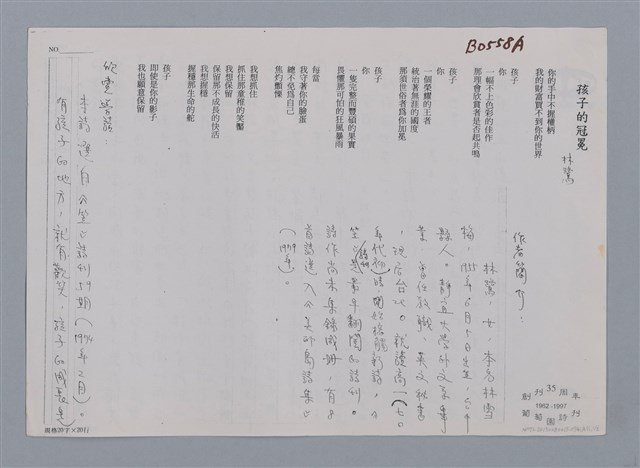 B0558A
NO.
孩子的冠冕
林鷺
你的手中不握權柄
我的財富買不到你的世界
孩子
你
一幅不上色彩的佳作
那理會欣賞者是否起共鳴
孩子
你
一個榮耀的王者
統治著無涯的國度
那須世俗者為你加冕
孩子
你
一隻完整而豐碩的果實
畏懼那可怕的狂風暴雨
每當
我守著你的臉蛋
總不免為自己
焦灼憔悴
我想抓住
抓住那童稚的笑靨
我想保留
保留那不成長的快活
我想握穩
握穩那生命的舵
孩子
即使是你的影子
我也願意保留
作者簡介：
林鷺，女，本名林雪
梅，1955年6月5日生，台中
縣人。靜宜大學外文系畢
業，曾任教職、英文秘書
，現居台北。就讀高一（七〇
年代初）時，開始接觸新詩，
笠詩刊是最早翻閱的詩刊。
詩作尚未集錦成冊，有8
首詩選入今美麗島詩集
（1979年）。
欣雲簽註：
本詩選自《笠》詩刊59期（1974年2月）。
有孩子的地方，就有歡笑，孩子的國度是
創刊35周年刊
1962-1997
葡萄園詩刊
規格20字×20行